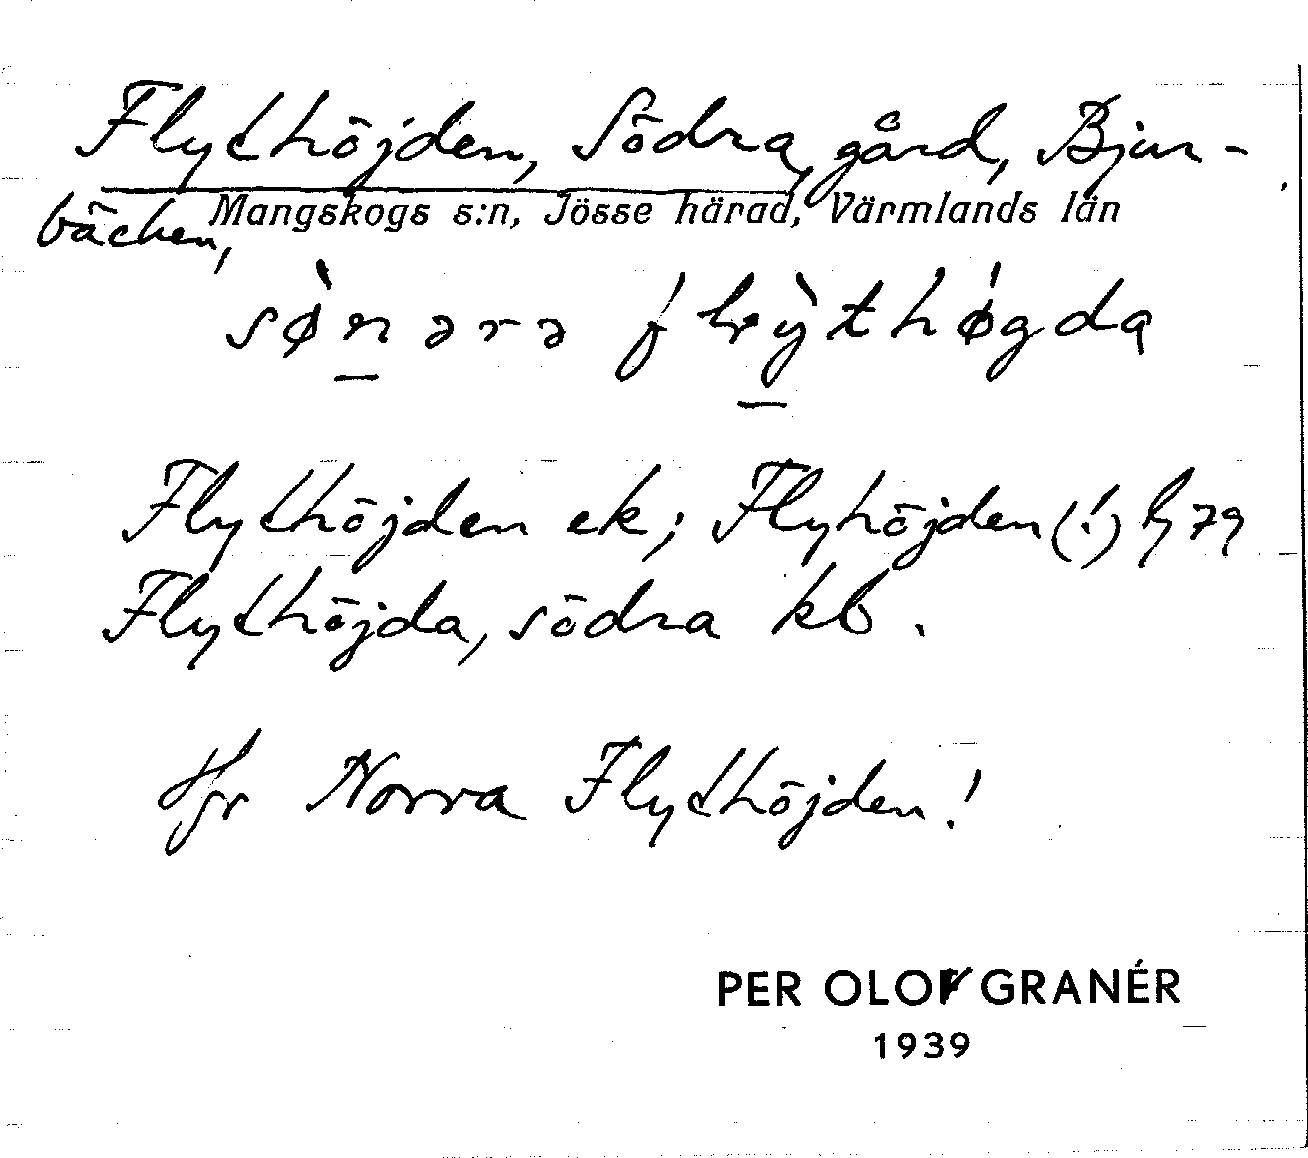 Flythöjden, Södra, gård, Bjur-
bäcken, Mangskogs s:n, Jösse härad, Värmlands län
Flythöjden ek; Flyhöjden (!) hy 79
Flythöjda, södra kb.
Jfr Norra Flythöjden!
PER OLOF GRANÉR
1939